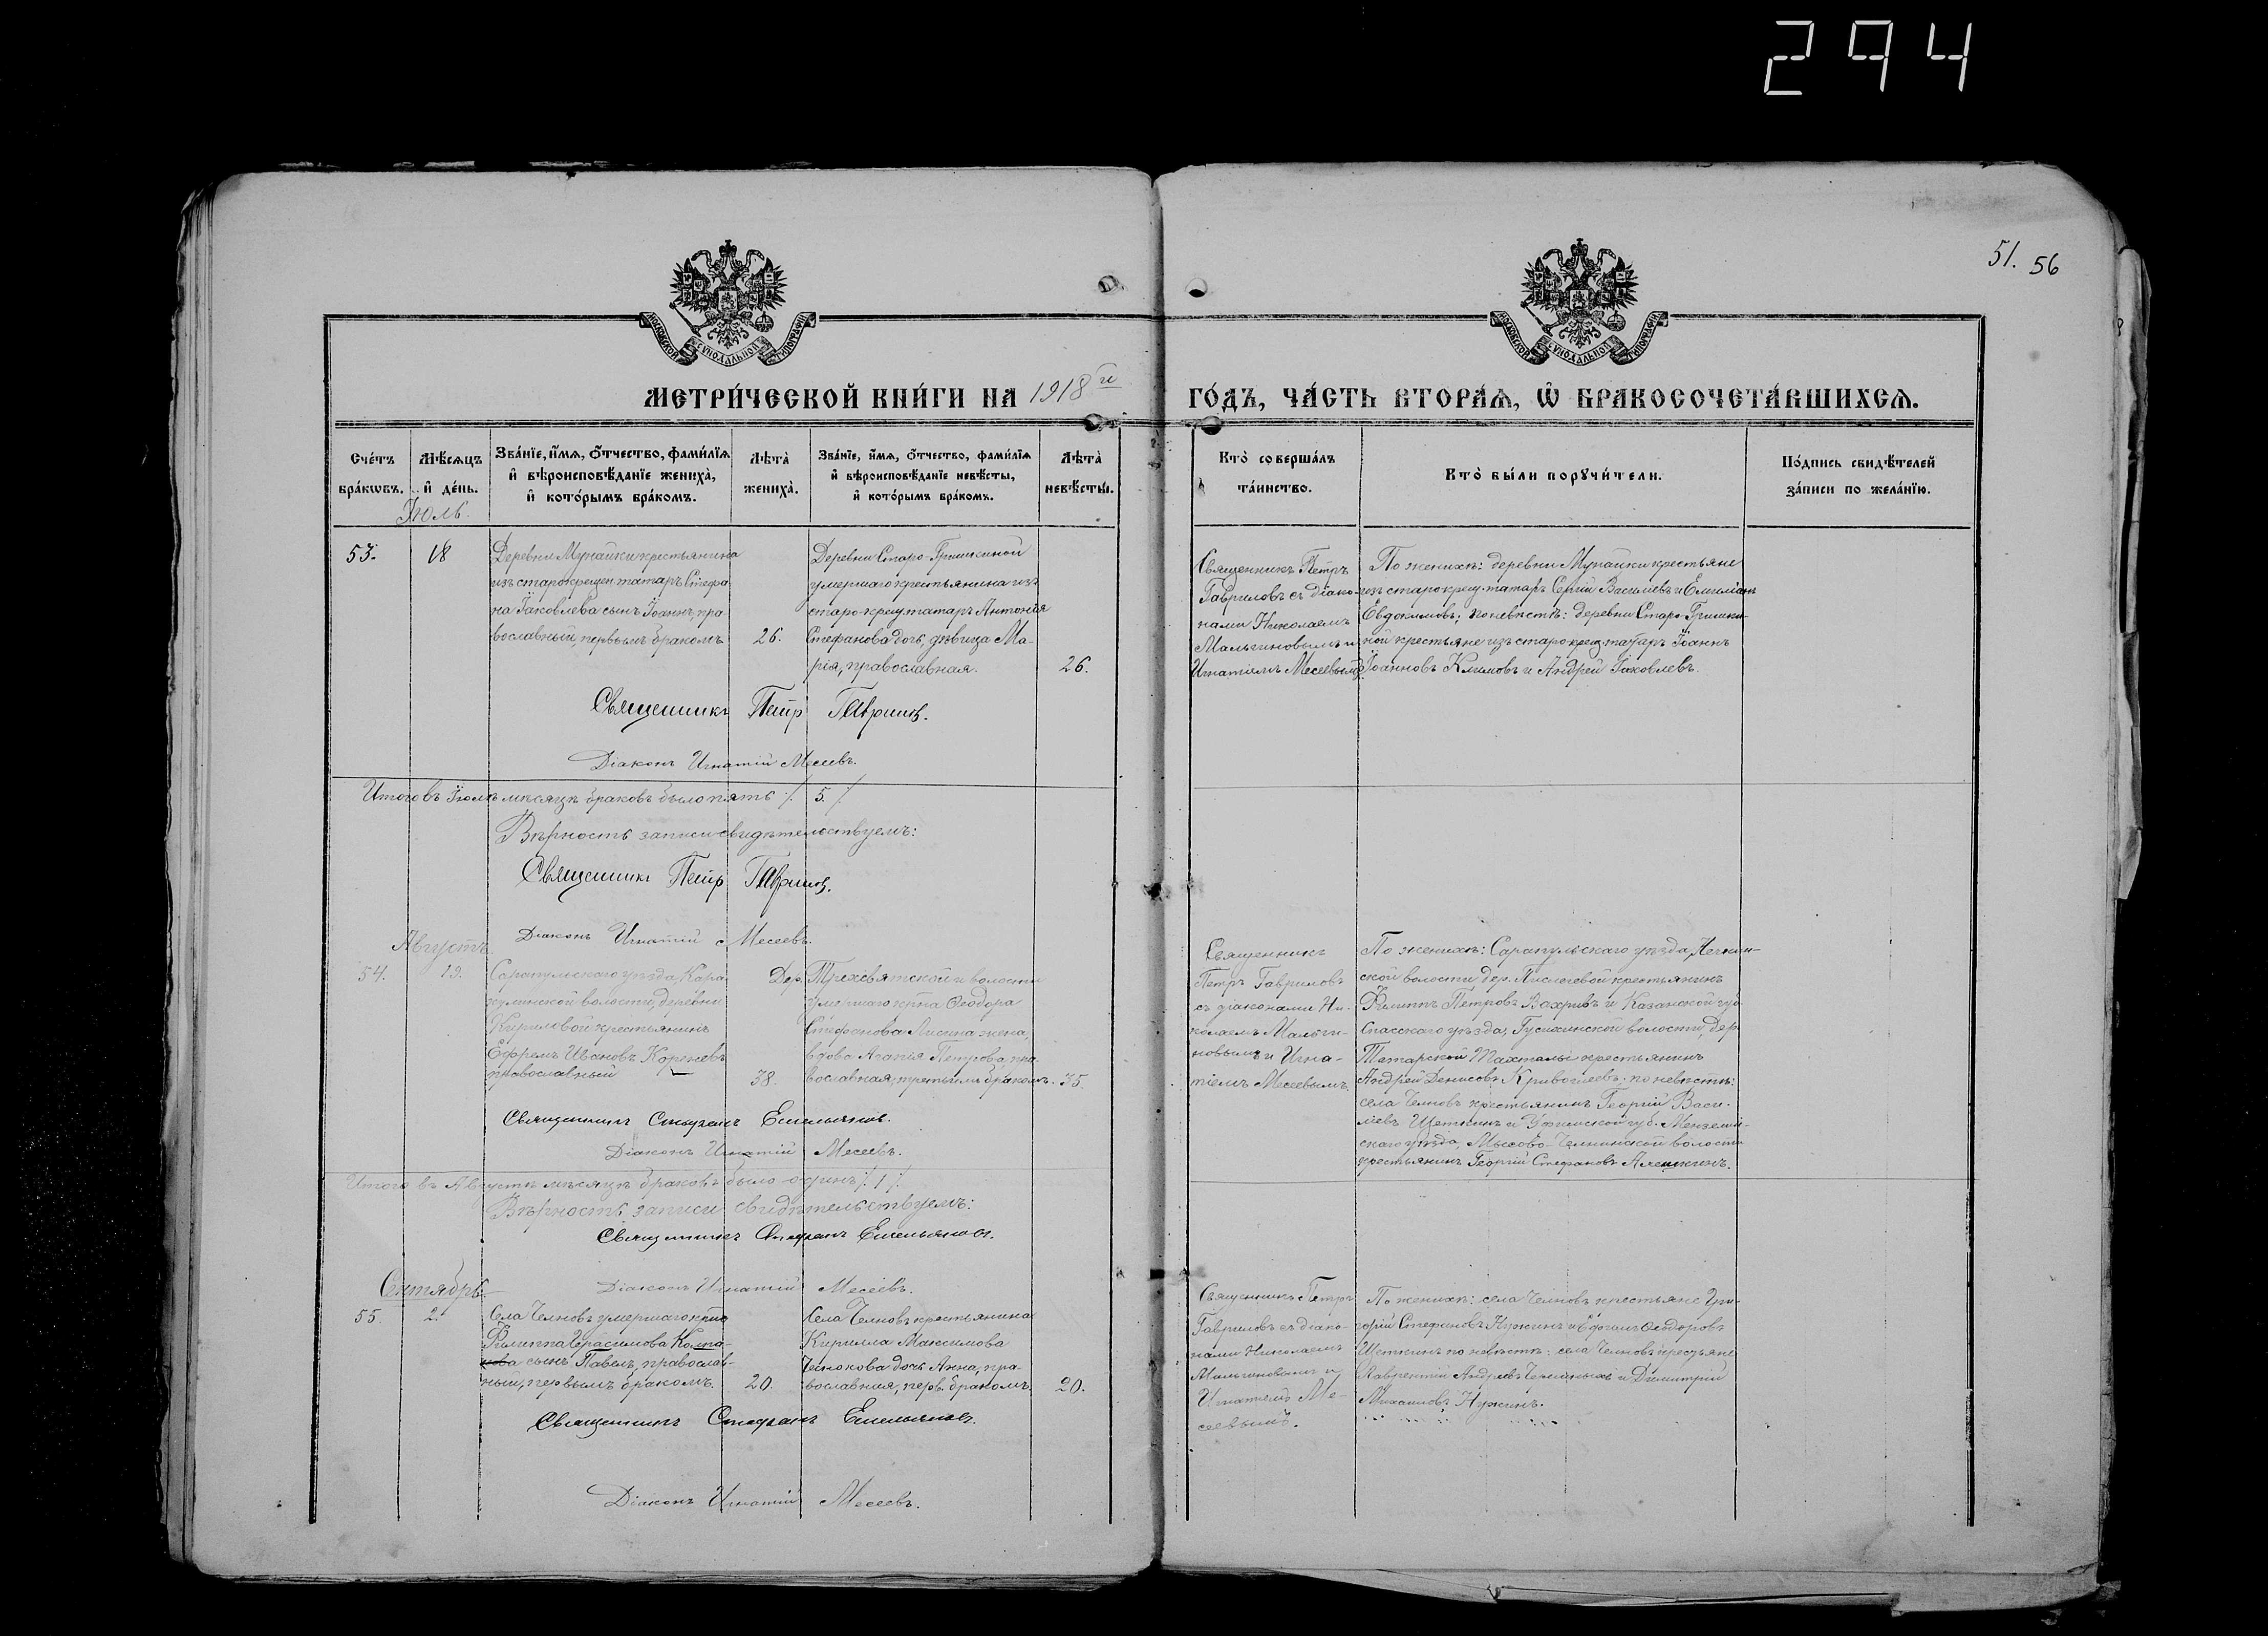 294
51. 56
МОСКОВСКОЙ СѴНОДАЛЬНОЙ ТИПОГРАФІИ
МОСКОВСКОЙ СѴНОДАЛЬНОЙ ТИПОГРАФІИ
МЕТРИ́ЧЕСКОЙ КНИ́ГИ НА 1918 й ГО́ДЪ, ЧА́СТЬ ВТОРА́Ѧ, Ѽ БРАКОСОЧЕТА́ВШИХСѦ.
Сче́тъ
бра́кѡвъ.
Мѣ́сѧцъ
и҆ де́нь.
Зва́нїе, и҆́мѧ, ѻ҆́тчество, фами́лїѧ
и҆ вѣроисповѣ́данїе жениха̀,
и҆ кото́рымъ бра́комъ.
Лѣта̀
жениха̀.
Зва́нїе, и҆́мѧ, ѻ҆́тчество, фами́лїѧ
и҆ вѣроисповѣ́данїе невѣ́сты,
и҆ кото́рымъ бра́комъ.
Лѣта̀
невѣ́сты.
Кто̀ соверша́лъ
та́инство.
Кто̀ бы́ли порꙋчи́тели.
По́дпись свидѣ́телей
за́писи по жела́нїю.
Іюль.
53.
18
Деревни Мунайки крестьянина
изъ старокрещен. татаръ Стефа
на Іаковлева сынъ Іоаннъ, пра
вославный, первымъ бракомъ
26.
Деревни Старо-Гришкиной
умершаго крестьянина изъ
старо-крещ. татаръ Антонія
Стефанова дочь, дѣвица Ма-
рія, православная.
26.
Священникъ Петръ
Гавриловъ съ діако-
нами Николаемъ
Мальгиновымъ и
Игнатіемъ Месеевымъ
По женихѣ: деревни Мунайки крестьяне
изъ старокрещ. татаръ Сергій Васильевъ и Емиліанъ
Евдокимовъ; по невѣстѣ: деревни Старо-Гришки-
ной крестьяне изъ старокрещ. татаръ Іоаннъ
Іоанновъ Климовъ и Андрей Іаковлевъ.
Священникъ Петр Гаврилов.
Діаконъ Игнатій Месеевъ.
Итого въ Іюлѣ мѣсяцѣ браковъ было пять ./. 5 ./.
Вѣрность записи свидѣтельствуемъ:
Священникъ Петр Гаврилов.
Діаконъ Игнатій Месеевъ.
Августъ
54.
19.
Сарапульскаго уѣзда, Кара
кулинской волости, деревни
Кириловой крестьянинъ
Ефремъ Ивановъ
православный
38.
Дер. Трехсвятской и волости
умершаго кр-на Ѳеодора
Стефанова жена,
вдова Агапія Петрова, пра
вославная, третьимъ бракомъ.
35.
Священникъ
Петръ Гавриловъ
съ діаконами Ни-
колаемъ Мальги-
новымъ и Игна-
тіемъ Месеевымъ
По женихѣ: Сарапульскаго уѣзда,
ской волости, дер. крестьянинъ
Филиппъ Петровъ Вахривъ и Казанской губ.
Спасскаго уѣзда, волости, дер.
Татарской крестьянинъ
Андрей Денисовъ по невѣстѣ:
села Челновъ крестьянинъ Георгій Васи-
льевъ Щеткинъ и Уфимской губ. Мензелин-
скаго уѣзда, Мысово-Челнинской волости
крестьянинъ Георгій Стефановъ Алешкинъ.
Священникъ Стефанъ Емельяновъ.
Діаконъ Игнатій Месеевъ.
Итого въ Августѣ мѣсяцѣ браковъ было один ./. 1 ./.
Вѣрность записи свидѣтельствуемъ:
Священникъ Стефанъ Емельяновъ.
Діаконъ Игнатій Месеевъ.
Сентябрь
55.
2.
Села Челновъ умершаго кр-на
Филиппа Герасимова
сынъ Павелъ, православ-
ный, первымъ бракомъ.
20.
Села Челновъ крестьянина
Кирилла Максимова
дочь Анна, пра
вославная, перв. бракомъ.
20.
Священникъ Петръ
Гавриловъ съ діако-
нами Николаемъ
Мальгиновымъ и
Игнатіемъ Ме-
сеевымъ.
По женихѣ: села Челновъ крестьяне Гри-
горій Стефановъ Нужинъ и Ѳеодоровъ
Щеткинъ по невѣстѣ: села Челновъ крестьяне
Лаврентій Андреевъ и Димитрій
Михаиловъ Нужинъ.
Священникъ Стефанъ Емельяновъ.
Діаконъ Игнатій Месеевъ.